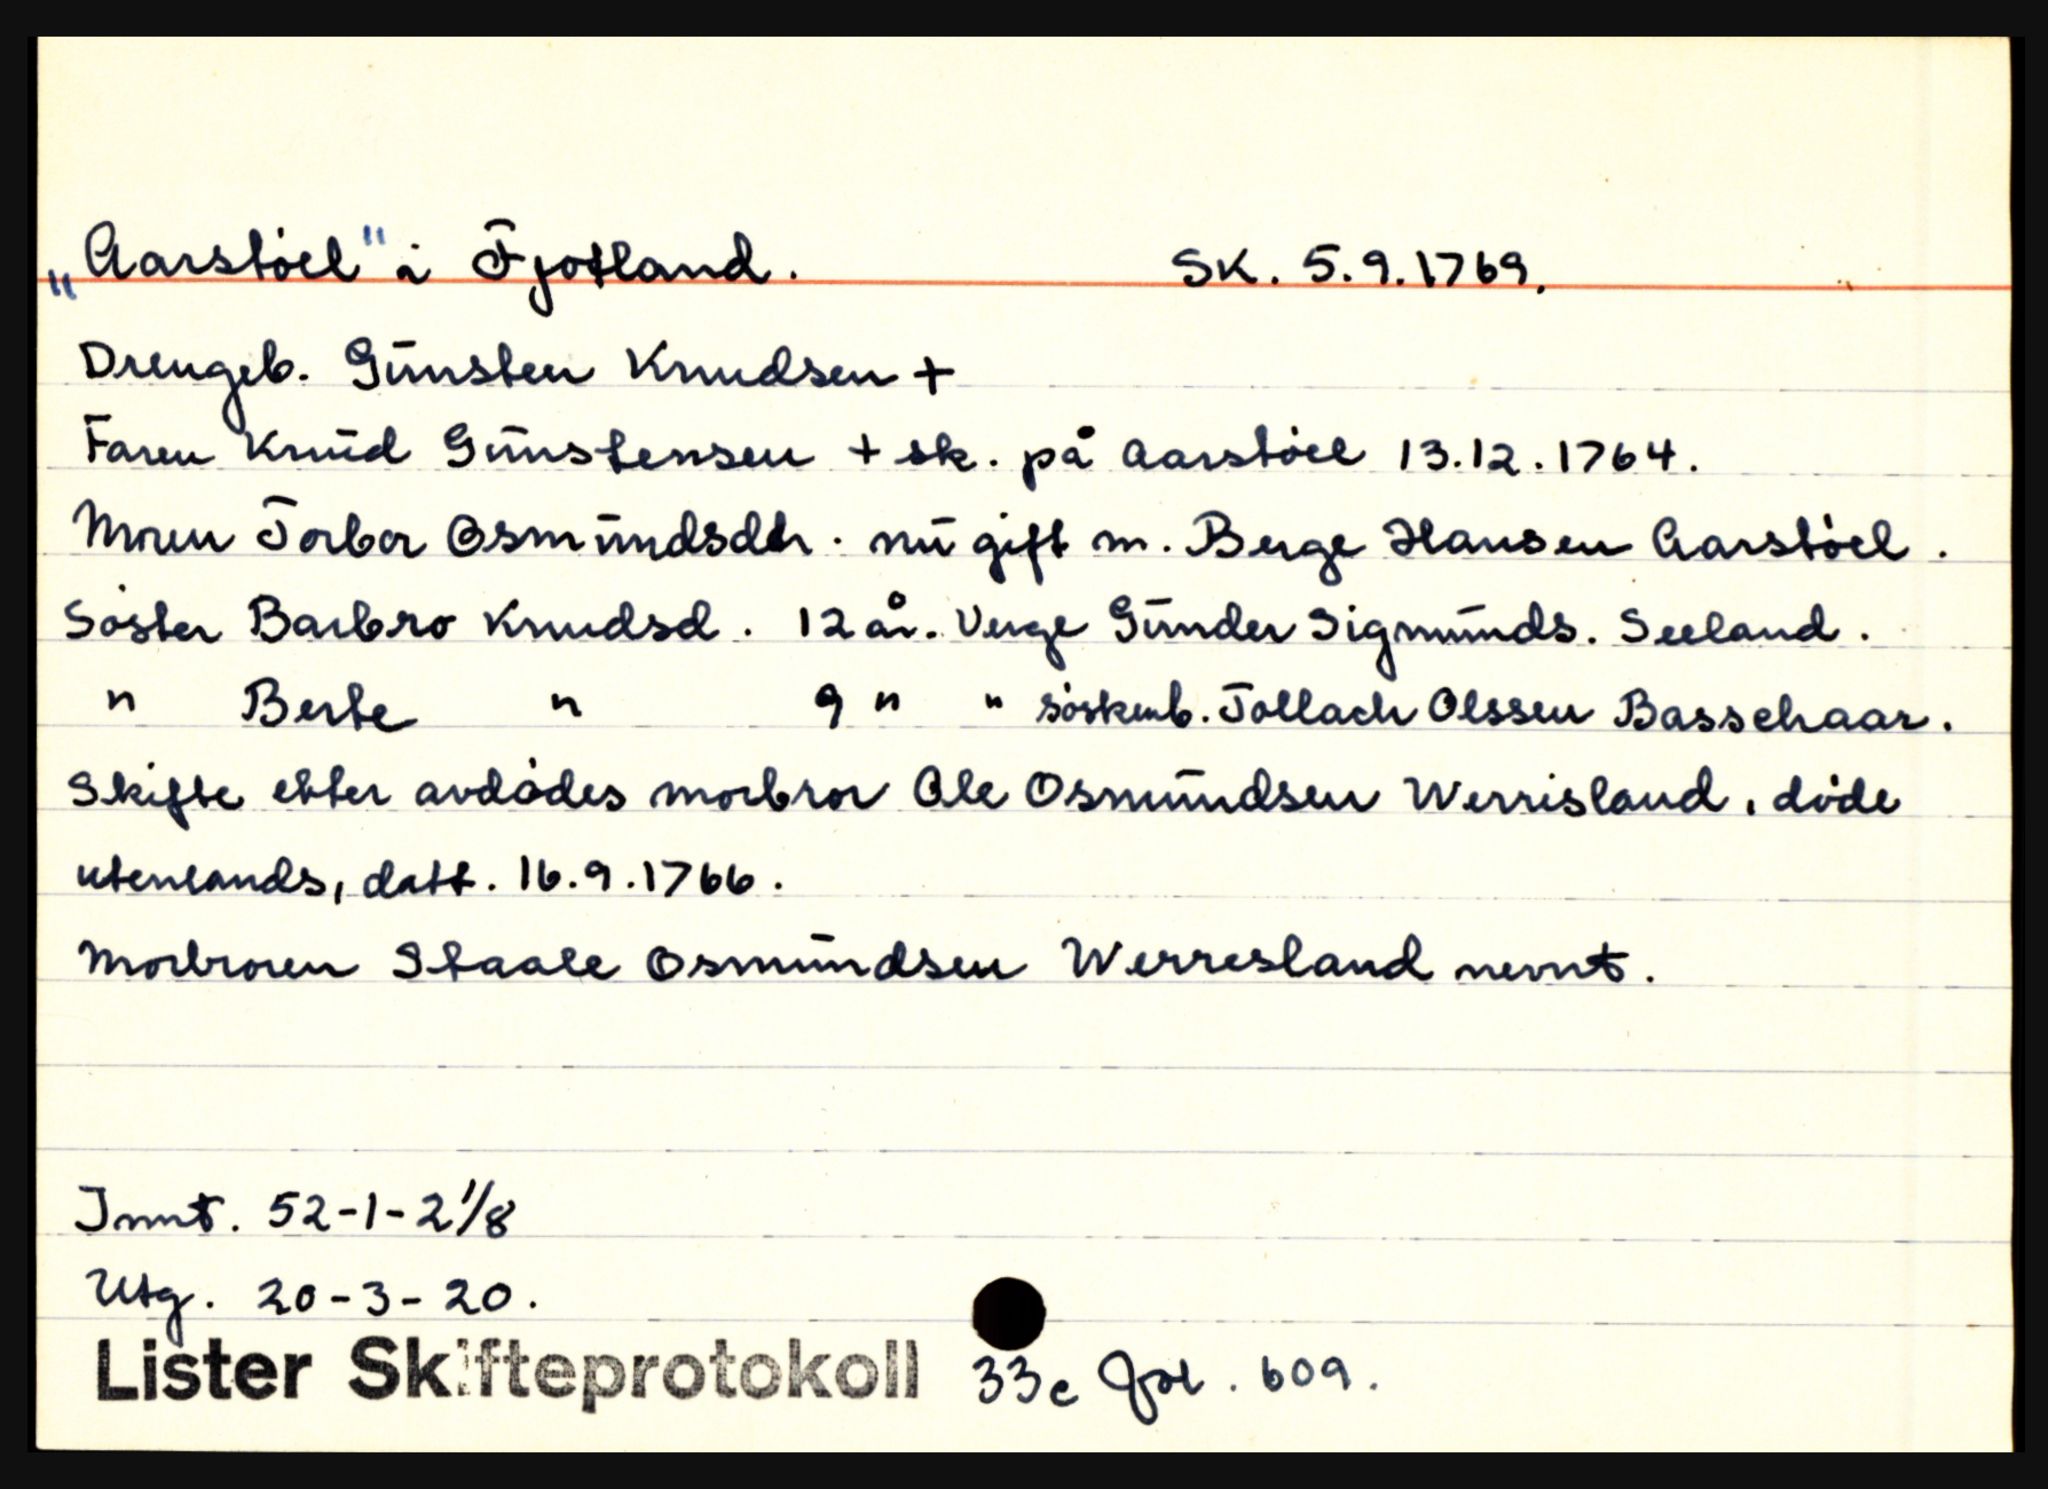 „Aarstöel" i Fjotland. SK. 5.9.1769.
Drengeb. Gunsten Knudsen +
Faren Knud Gunstensen + sk. på Aarstöel 13.12.1764.
Moren Torbor Osmundsdtr. nu gift m. Berge Hansen Aarstöel.
Söster Barbro Knudsd. 12 år. Verge Gunder Sigmunds. Seeland.
" Berte " 9 " " söskenb. Tollach Olssen Bassehaar.
Skifte etter avdödes morbror Ole Osmundsen Werrisland, döde
utenlands, datt. 16.9.1766.
Morbroren Staale Osmundsen Werresland nevnt.
Innt. 52-1-2 1/8
Utg. 20-3-20.
Lister Skifteprotokoll 33c Fol. 609.